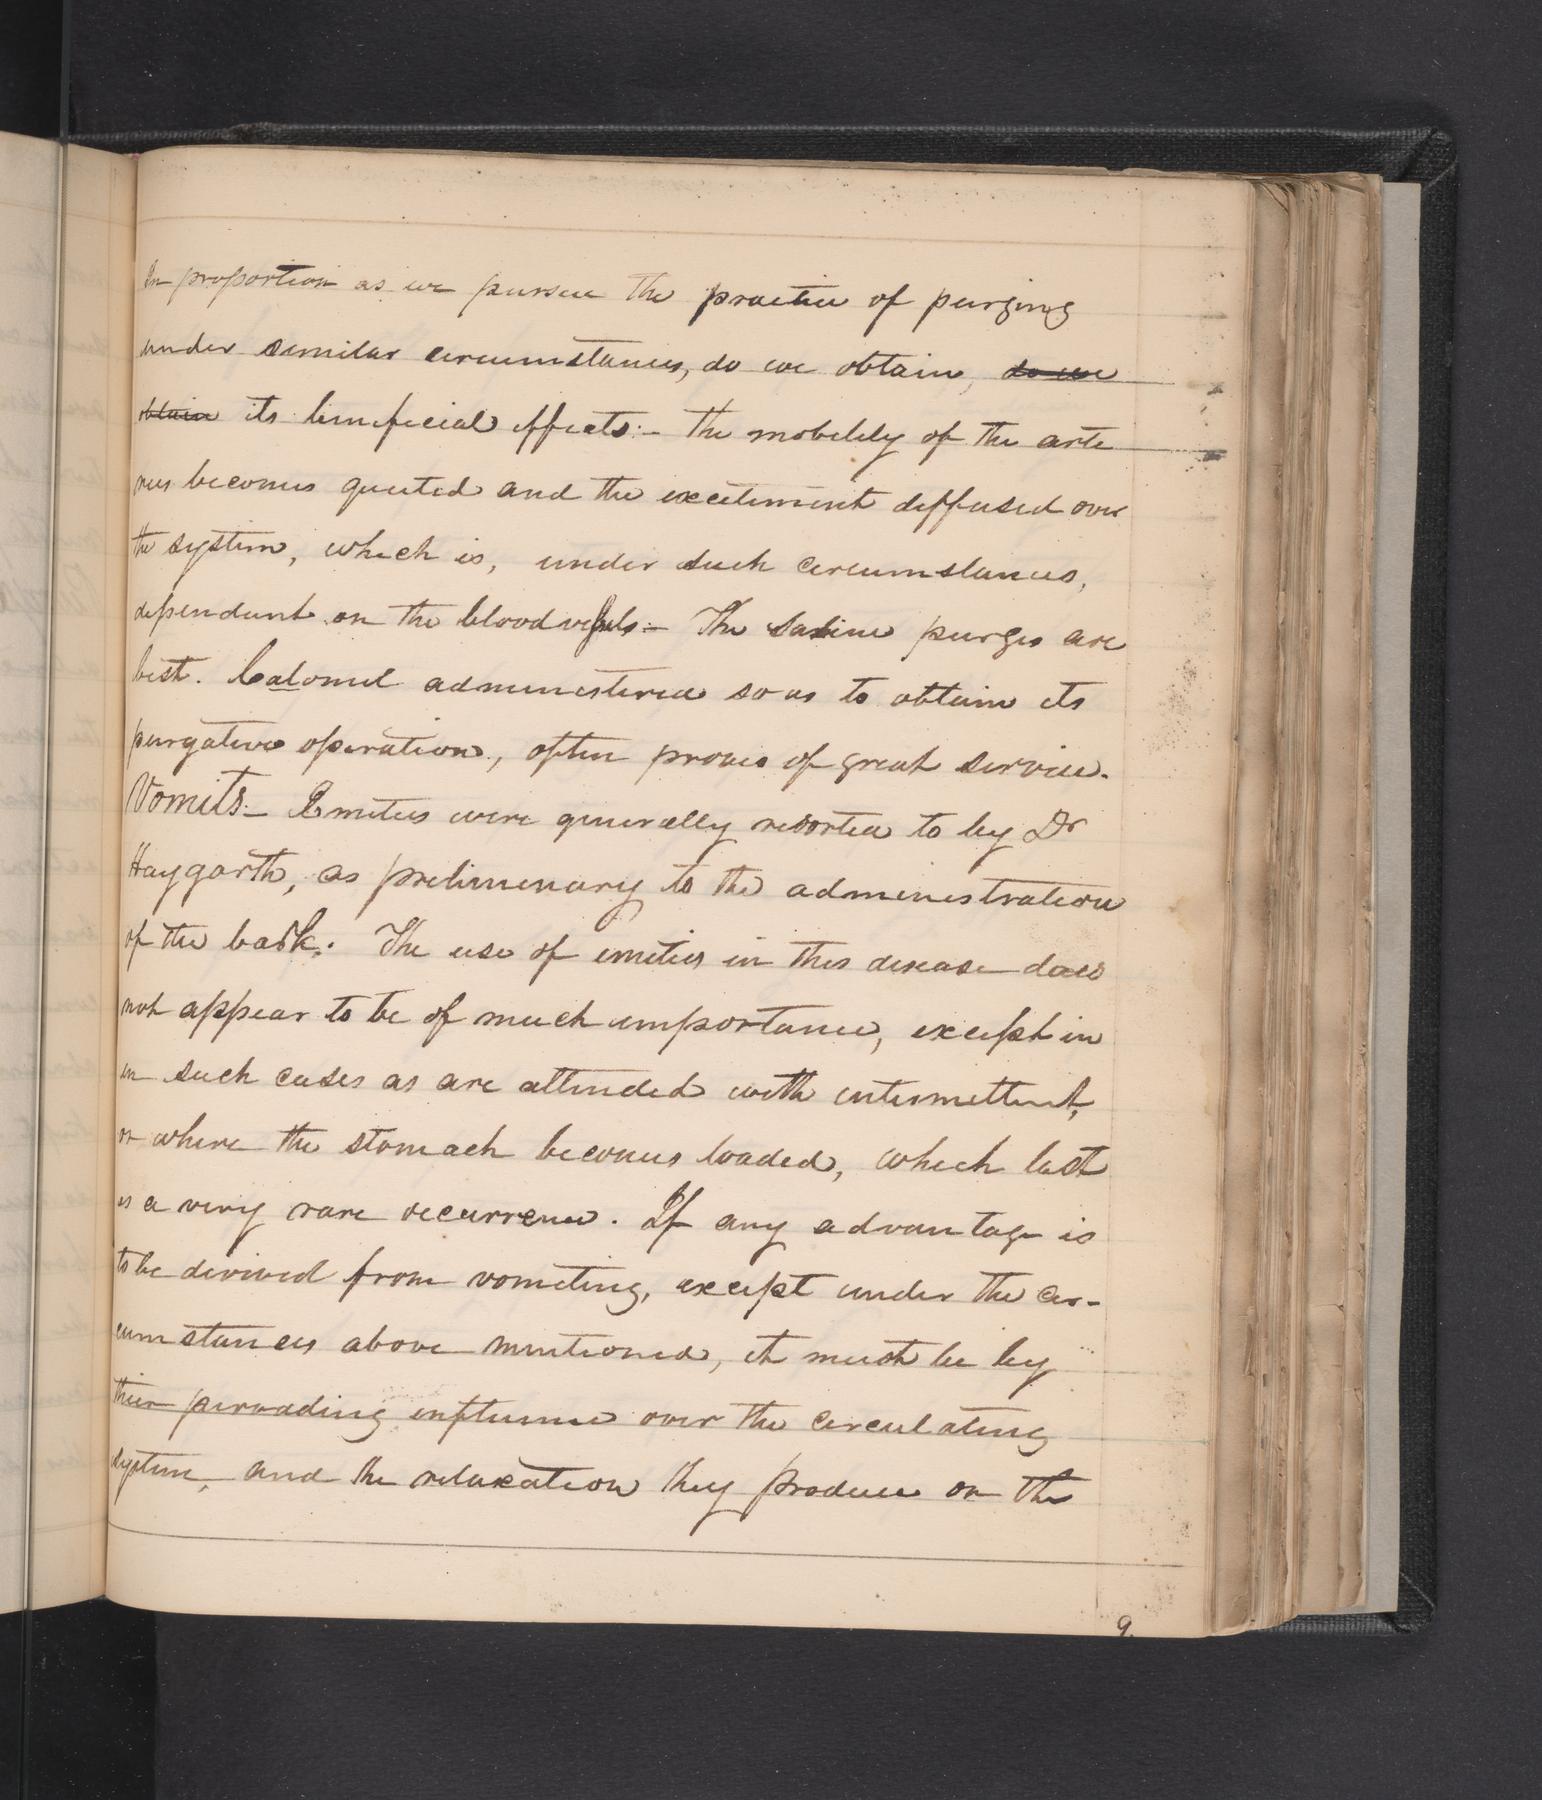 In proportion as we pursue the practice of purging
under similar circumstances, do we obtain, do we
obtain its beneficial effects:- the mobility of the arte
ries becomes quieted and the excitement diffused over
the system, which is, under such circumstances,
dependent on the bloodvessels:- The saline purges are
best. Calomel administered so as to obtain its
purgative operation, often proves of great service.
Vomits:- Emetics were generally resorted to by Dr
Haygarth, as preliminary to the administration
of the bark. The use of emetics in this disease does
not appear to be of much importance, except in
in such cases as are attended with intermittent,
or where the stomach becomes loaded, which last
is a very rare occurrence. If any advantage is
to be derived from vomiting, except under the cir-
cumstances above mentioned, it must be by
their pervading influence over the circulating
system, and the relaxation they produce on the
9.